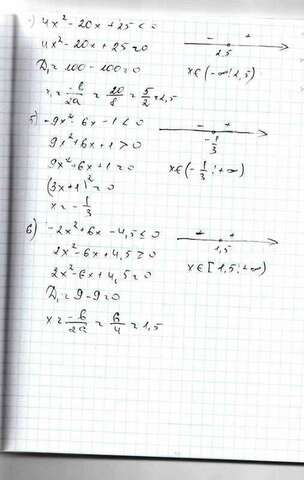 4x² - 20x + 25 < 0
4x² - 20x + 25 = 0
D₁ = 100 - 100 = 0
x = -b/2a = 20/8 = 5/2 = 2,5
- +
2,5
x ∈ (-∞; 2,5)
5) -9x² - 6x - 1 < 0
9x² + 6x + 1 > 0
9x² + 6x + 1 = 0
(3x + 1)² = 0
x = -1/3
- +
-1/3
x ∈ (-1/3; +∞)
6) -2x² + 6x - 4,5 ≤ 0
2x² - 6x + 4,5 ≥ 0
2x² - 6x + 4,5 = 0
D₁ = 9 - 9 = 0
x = -b/2a = 6/4 = 1,5
+ +
1,5
x ∈ [1,5; +∞)